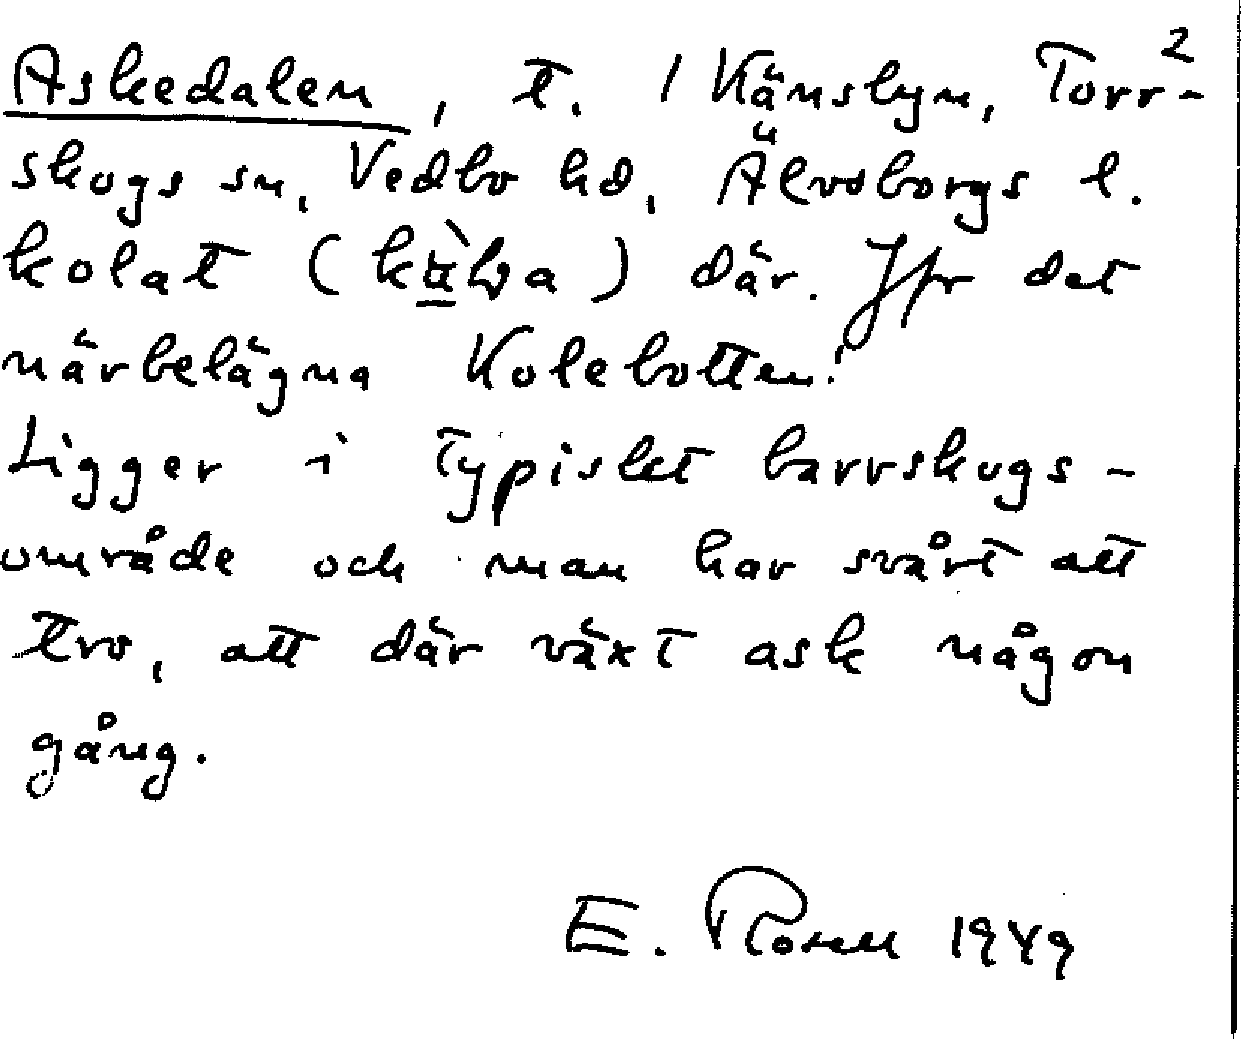 2
Askedalen, t. / Känslyn, Torr-
skogs sn, Vedbo hd, Älvsborgs l.
kolat ( ) där. Jfr det
närbelägna Kolebotten!
Ligger i typiskt barrskogs-
område och man har svårt att
tro, att där växt ask någon
gång.
E. Rosell 1949